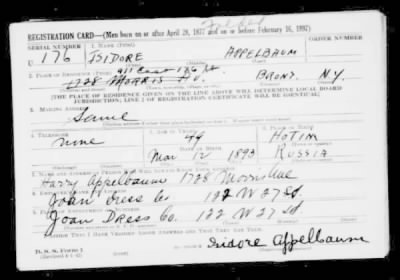 REGISTRATION CARD—(Men born on or after April 28, 1877 and on or before February 16, 1897)
SERIAL NUMBER 1. NAME (Print) ORDER NUMBER
U 176 ISIDORE APPELBAUM
2. PLACE OF RESIDENCE (Print)
1728 MORRIS AV. BRONX N.Y.
[THE PLACE OF RESIDENCE GIVEN ON THE LINE ABOVE WILL DETERMINE LOCAL BOARD
JURISDICTION; LINE 2 OF REGISTRATION CERTIFICATE WILL BE IDENTICAL]
3. MAILING ADDRESS
Same
4. TELEPHONE 5. AGE IN YEARS 6. PLACE OF BIRTH
none 49 HOTIM
DATE OF BIRTH
Mar 12 1893 RUSSIA
7. NAME AND ADDRESS OF PERSON WHO WILL ALWAYS KNOW YOUR ADDRESS
Harry Appelbaum 1728 Morris Ave
8. EMPLOYER'S NAME AND ADDRESS
Joan Dress Co 132 W 27 St
9. PLACE OF EMPLOYMENT OR BUSINESS
Joan Dress Co. 132 W 27 St
I AFFIRM THAT I HAVE VERIFIED ABOVE ANSWERS AND THAT THEY ARE TRUE.
D. S. S. Form 1
Isidore Appelbaum